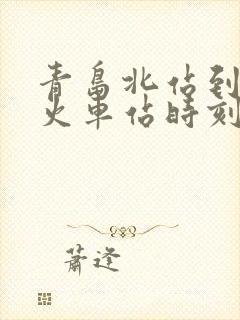 青島北站到
火車站時刻
蕭逢